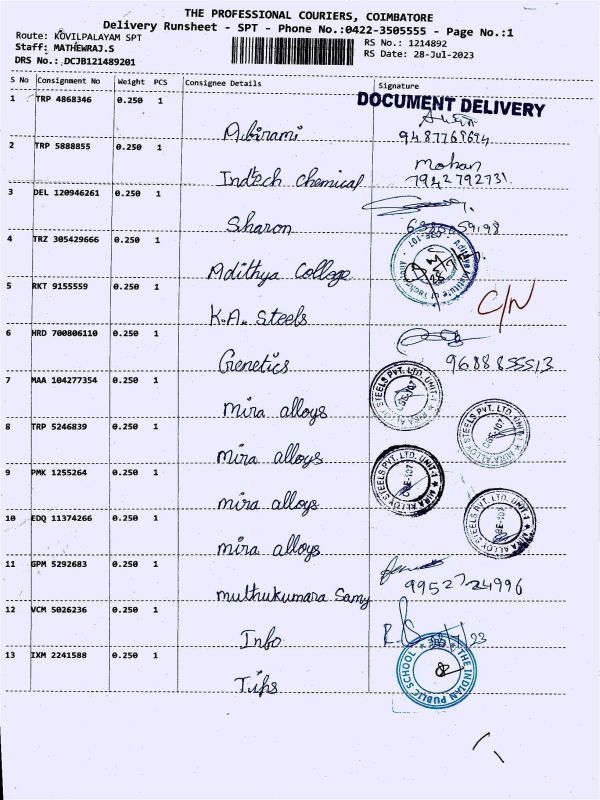 THE PROFESSIONAL COURIERS, COIMBATORE
Delivery Runsheet - SPT - Phone No.:0422-3505555 - Page No.:1
Route: KOVILPALAYAM SPT
RS No.: 1214892
Staff: MATHEWRAJ.S
RS Date: 28-Jul-2023
DRS No.: DCJB121489201
S No Consignment No Weight PCS Consignee Details Signature
DOCUMENT DELIVERY
1 TRP 4868346 0.250 1
Abirami 9487768674
2 TRP 5888855 0.250 1
Mohan
Indtech chemical 7942792731
3 DEL 120946261 0.250 1
Sharon
4 TRZ 305429666 0.250 1
Adithya College
5 RKT 9155559 0.250 1
C/N
K.A. Steels
6 HRD 700806110 0.250 1
Genetics 9688855513
7 MAA 104277354 0.250 1
MIRA ALLOY STEELS PVT. LTD. UNIT-1
CBE-107
mira alloys
8 TRP 5246839 0.250 1
MIRA ALLOY STEELS PVT. LTD. UNIT-1
CBE-107
mira alloys
9 PMK 1255264 0.250 1
MIRA ALLOY STEELS PVT. LTD. UNIT-1
CBE-107
mira alloys
10 EDQ 11374266 0.250 1
MIRA ALLOY STEELS PVT. LTD. UNIT-1
CBE-107
mira alloys
11 GPM 5292683 0.250 1
muthukumara Samy 9952724996
12 VCM 5026236 0.250 1
Info
13 IXM 2241588 0.250 1
THE INDIAN PUBLIC SCHOOL
Tips